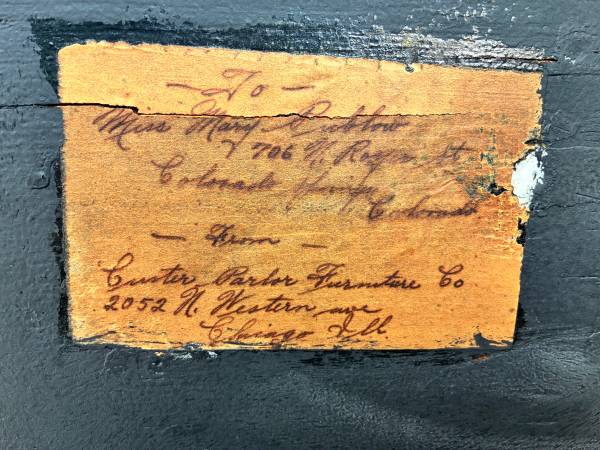 — To —
Miss Mary
706 N. St
Colorado Springs
Colorado
— From —
Custer Parlor Furniture Co
2052 N. Western ave
Chicago Ill.